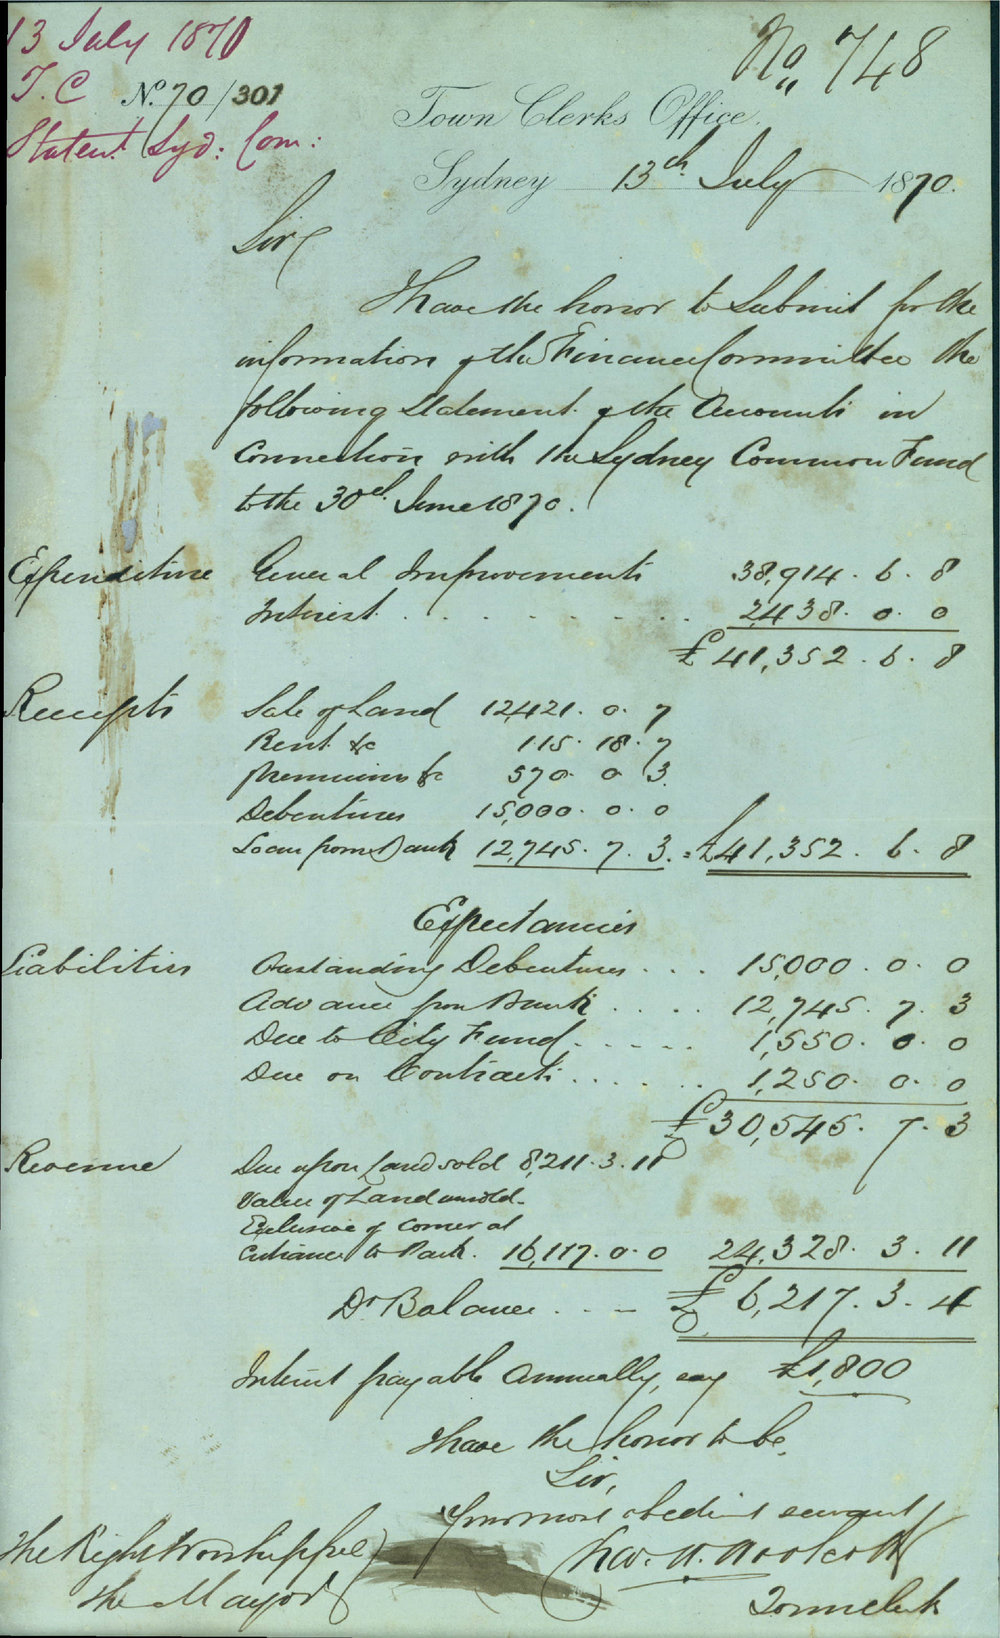 13 July 1870
T.C No. 70/301
Statemt. Syd: Com:
No,, 748
Town Clerks Office.
Sydney 13th July 1870.
Sir
I have the honor to submit for the
information of the Finance Committee the
following Statement of the Accounts in
Connection with the Sydney Common Fund
to the 30th June 1870.
Expenditure General Improvements 38,914. 6. 8
Interest . . . . . . . . 2,438. 0. 0
£ 41,352. 6. 8
Receipts Sale of Land 12,421. 0. 7
Rent &c 115. 18. 7
Premiums &c 570. 0 3.
Debentures 15,000. 0. 0
Loan from Bank 12,745. 7. 3. = £41,352. 6. 8
Expectancies
Liabilities Outstanding Debentures . . . 15,000. 0. 0
Advance from Bank . . . . 12,745. 7. 3
Due to City Fund . . . . . 1,550. 0. 0
Due on Contracts . . . . . . 1,250. 0. 0
£ 30,545. 7. 3
Revenue Due upon Land sold 8,211. 3. 11
Value of Land unsold.
Exclusive of Corner at
Entrance to Park. 16,117. 0. 0 24,328. 3. 11
Dr Balance . . - £ 6,217. 3. 4
Interest payable Annually, say £1,800
I have the honor to be,
Sir,
Your most obedient servant
Chas. H. Woolcott
Town Clerk
The Right Worshipful
the Mayor